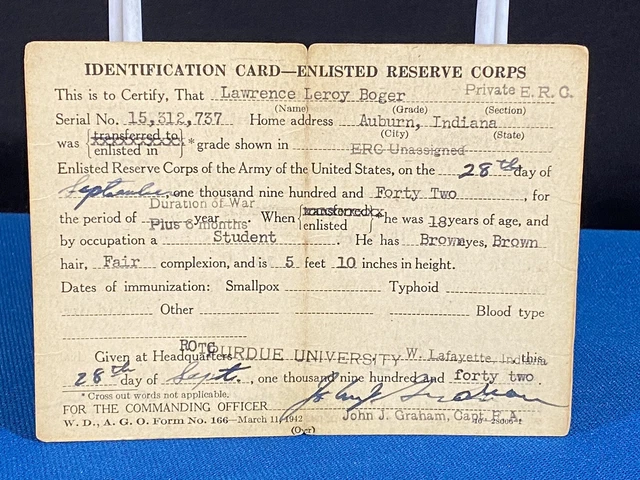 IDENTIFICATION CARD—ENLISTED RESERVE CORPS
This is to Certify, That Lawrence Leroy Boger Private E. R. C.
(Name) (Grade) (Section)
Serial No. 15,312,737 Home address Auburn, Indiana
(City) (State)
was { transferred to
enlisted in } * grade shown in ERC Unassigned
Enlisted Reserve Corps of the Army of the United States, on the 28th day of
September, one thousand nine hundred and Forty Two, for
the period of Duration of War
Plus 6 months year. When { transferred
enlisted } * he was 18 years of age, and
by occupation a Student. He has Brown eyes, Brown
hair, Fair complexion, and is 5 feet 10 inches in height.
Dates of immunization: Smallpox Typhoid
Other Blood type
ROTC
Given at Headquarters PURDUE UNIVERSITY, W. Lafayette, Indiana this
28th day of Sept., one thousand nine hundred and forty two.
* Cross out words not applicable.
FOR THE COMMANDING OFFICER John J. Graham
W. D., A. G. O. Form No. 166—March 11, 1942 John J. Graham, Capt. F. A.
(Over)